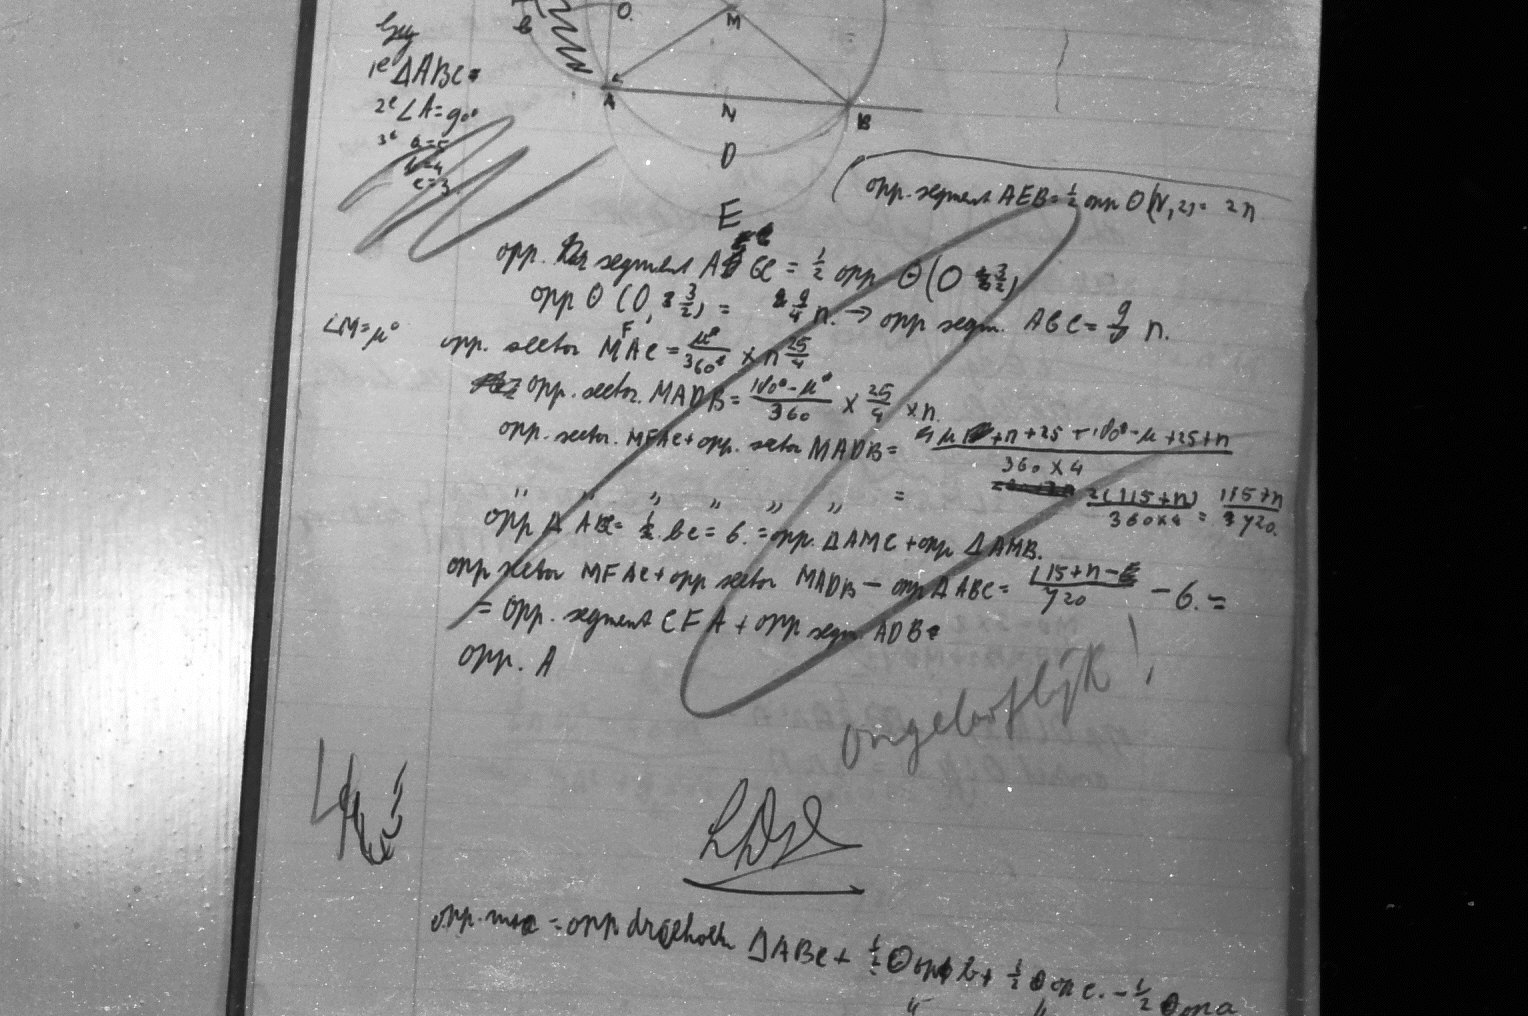 B O. M
Geg
1e ΔABC
2e ∠A=90°
3e a=5
b=4
c=3
A N B
D
E
opp. segment AEB=½ opp Θ(N,2)= 2π
opp. segment AGC = ½ opp Θ(O 3/2)
opp Θ (O, 3/2) = 9/4 π. → opp segm. AGC= 9/8 π.
∠M=μ°
opp. sector MFAC = μ°/360° × π 25/4
opp. sector. MADB = 180°-μ°/360 × 25/4 × π.
opp. sector. MFAC+opp. sector MADB= μ +π+25+180°-μ+25+π / 360 × 4
,, ,, ,, ,, ,, ,, = 2(115+π)/360×4 = 115+π/720.
opp Δ ABC= ½ bc = 6. = opp. ΔAMC+opp ΔAMB.
opp sector MFAC+opp sector MADB - opp ΔABC= 115+π-/720 - 6. =
= opp. segment CFA + opp segm. ADB
opp. A
ongelooflijk!
opp. = opp driehoek ΔABC+ ½ Θ op b+ ½ Θ op c. - ½ Θ op a
,, ,,